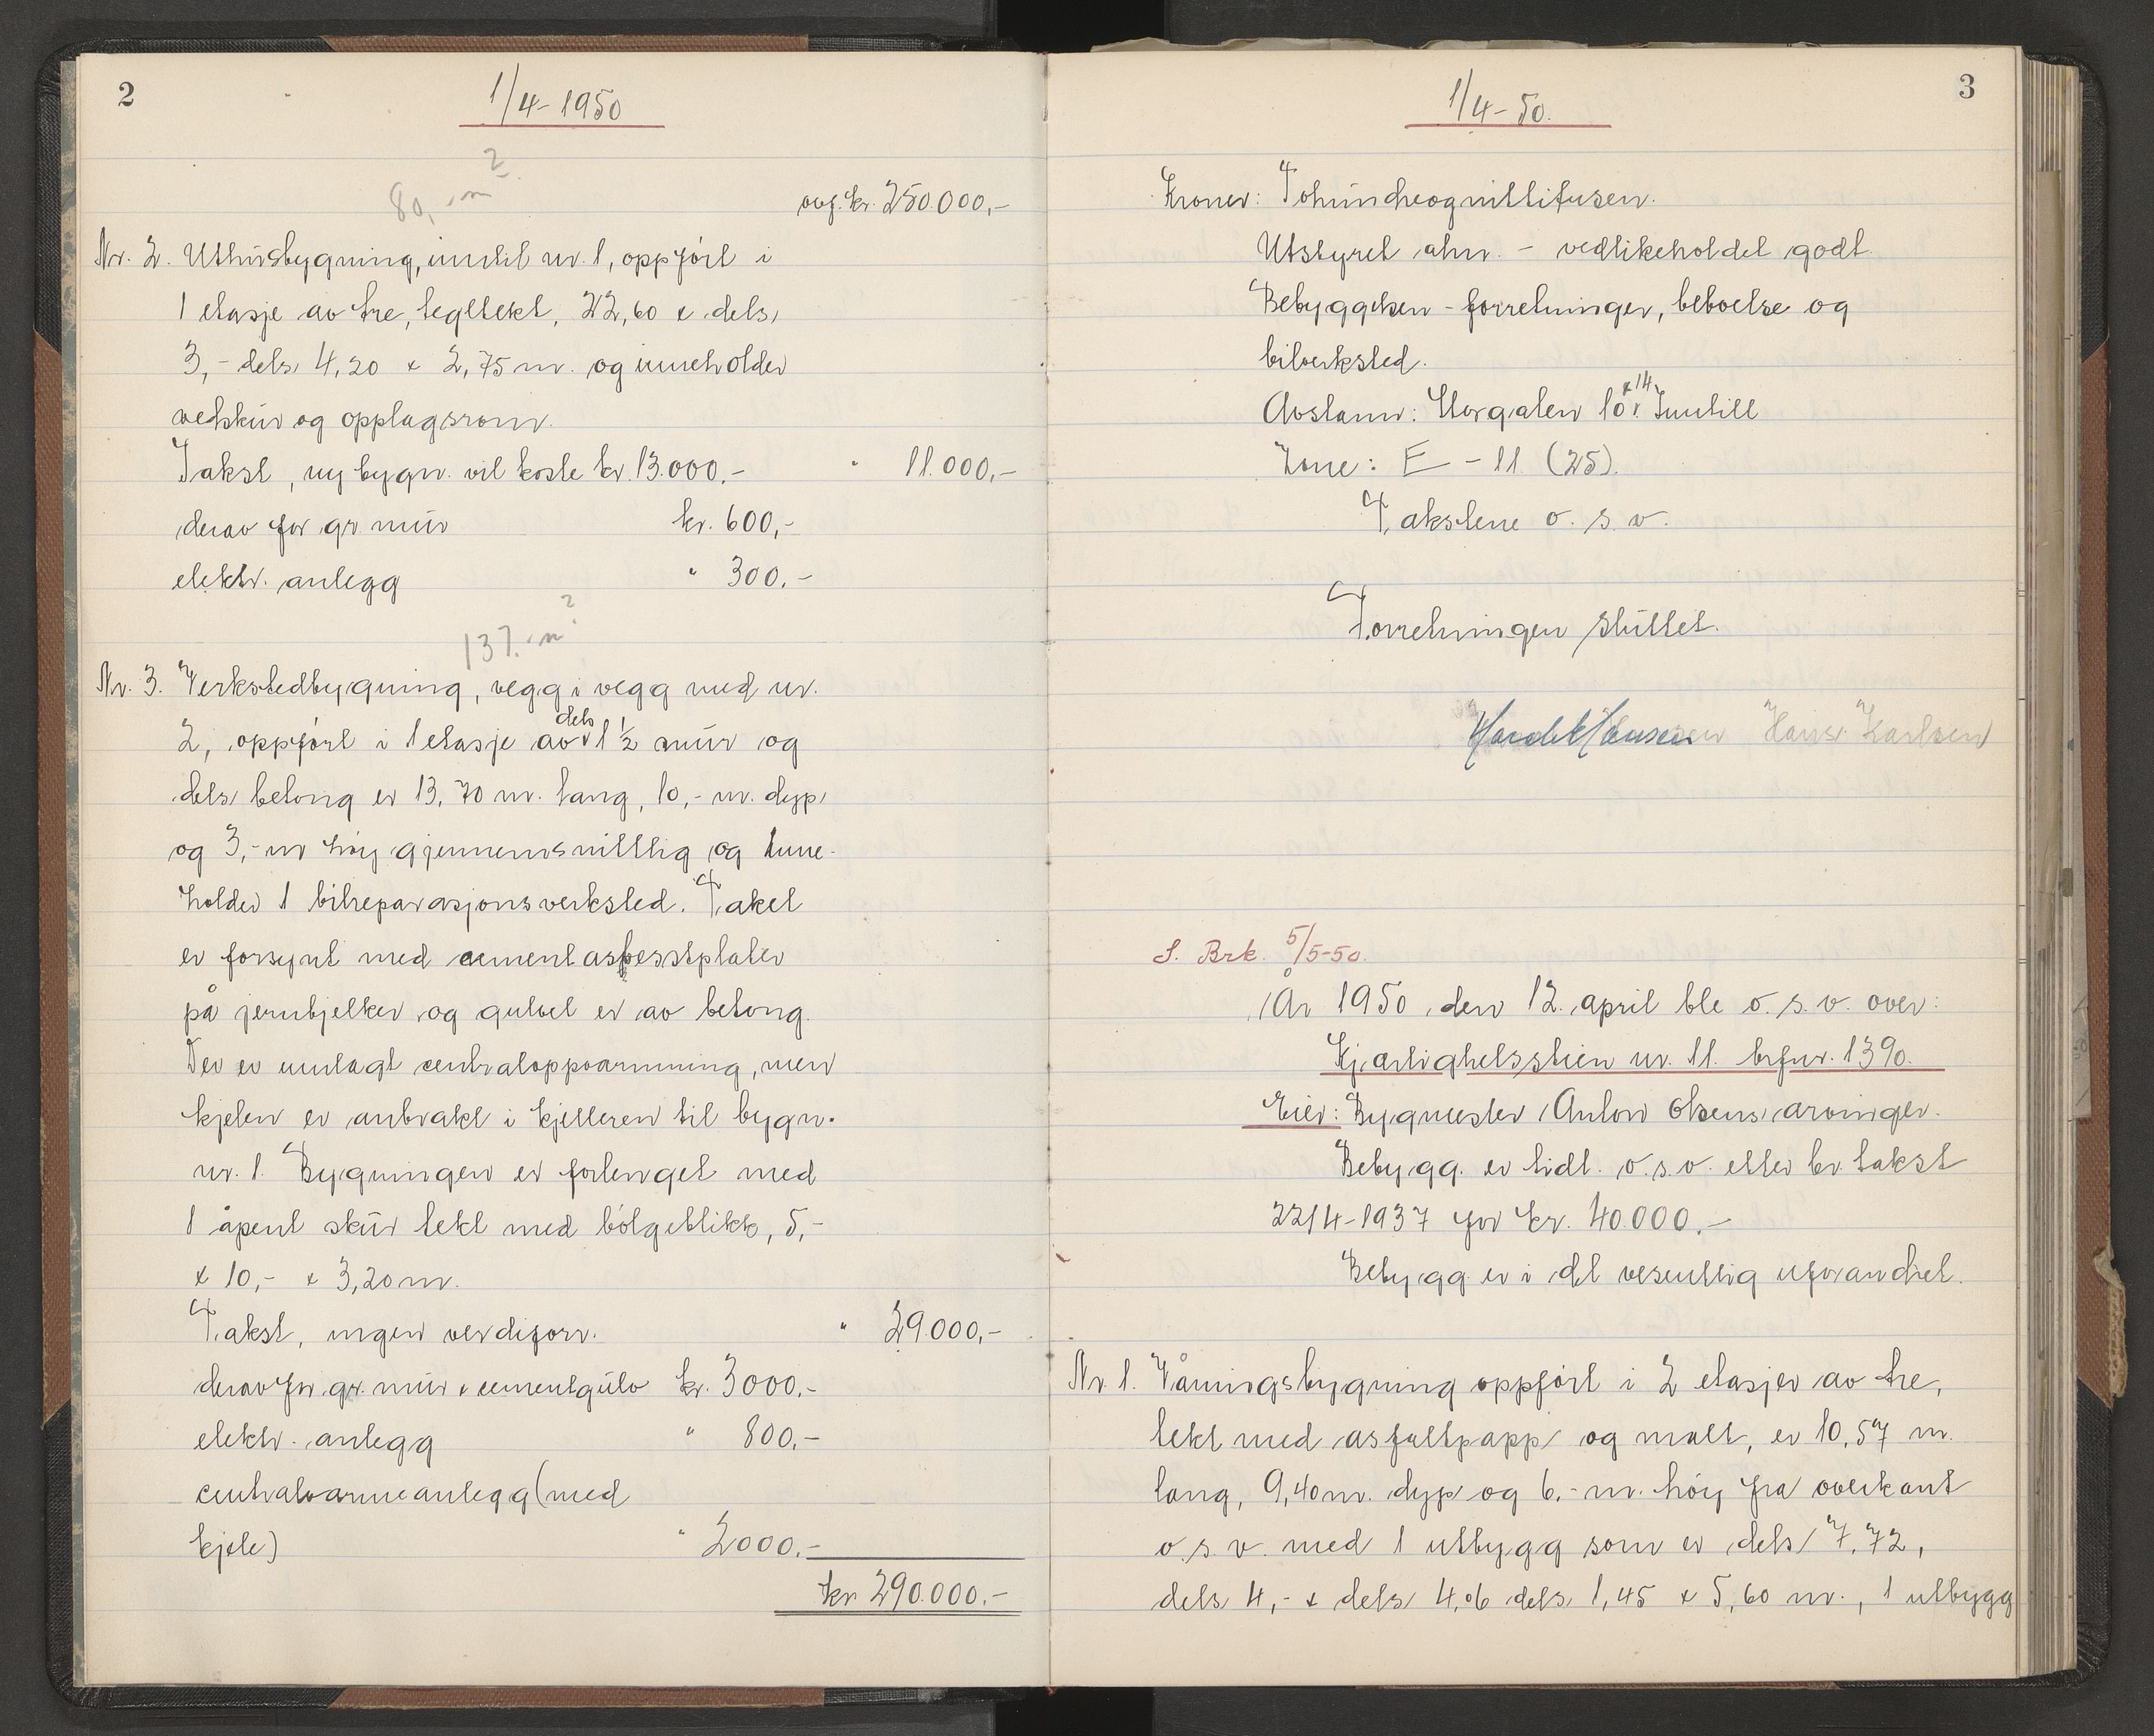 2
1/4-1950
80,- m²
ovf. kr. 250.000,-
Nr. 2. Uthusbygning, inntil nr. 1, oppført i
1 etasje av tre, tegltekt, 22,60 x dels
3,- dels 4,20 x 2,75 m. og inneholder
vedskur og opplagsrom.
Takst, ny bygn. vil koste kr. 13.000,- " 11.000,-
derav for gr. mur kr. 600,-
elektr. anlegg " 300.-
137. m²
Nr. 3. Verkstedbygning, vegg i vegg med nr.
2, oppført i 1 etasje av dels 1 ½ mur og
dels betong er 13,70 m. lang, 10,- m. dyp
og 3,- m høy gjennemsnittlig og inne-
holder 1 bilreparasjonsverksted. Taket
er forsynt med cementasbesstplater
på jernbjelker og gulvet er av betong.
Der er innlagt centraloppvarmning, men
kjelen er anbrakt i kjelleren til bygn.
nr. 1. Bygningen er forlenget med
1 åpent skur tekt med bølgeblikk, 5,-
x 10,- x 3,20 m.
Takst, ingen verdiforr. " 29.000,-
derav for gr. mur & cementgulv kr. 3000.-
elektr. anlegg " 800,-
centralvarmeanlegg (med
kjele) " 2000.-
kr 290.000.-
3
1/4-50.
Kroner: Tohundreognittitusen.
Utstyret alm. - vedlikeholdet godt.
Bebyggelsen - forretninger, beboelse og
bilverksted.
Avstann: Storgaten 10 x 14 Inntill
Zone: E - 11 (25).
Takstene o. s. v.
Forretningen sluttet.
Hans Karlsen
S. Brk. 5/5-50.
År 1950 den 12. april ble o. s. v. over:
Kjærlighetsstien nr. 11. brfnr. 1390.
Eier: Bygmester Anton Olsens arvinger.
Bebygg. er tidl. o.s.v. etter br. takst
22/4-1937 for kr. 40.000.-
Bebygg. er i det vesentlig uforandret.
Nr. 1. Våningsbygning oppført i 2 etasjer av tre,
tekt med asfaltpapp og malt, er 10,57 m.
lang, 9,40 m. dyp og 6,- m. høy fra overkant
o. s. v. med 1 utbygg som er dels 7,72,
dels 4,- x dels 4,06 dels 1,45 x 5,60 m., 1 utbygg